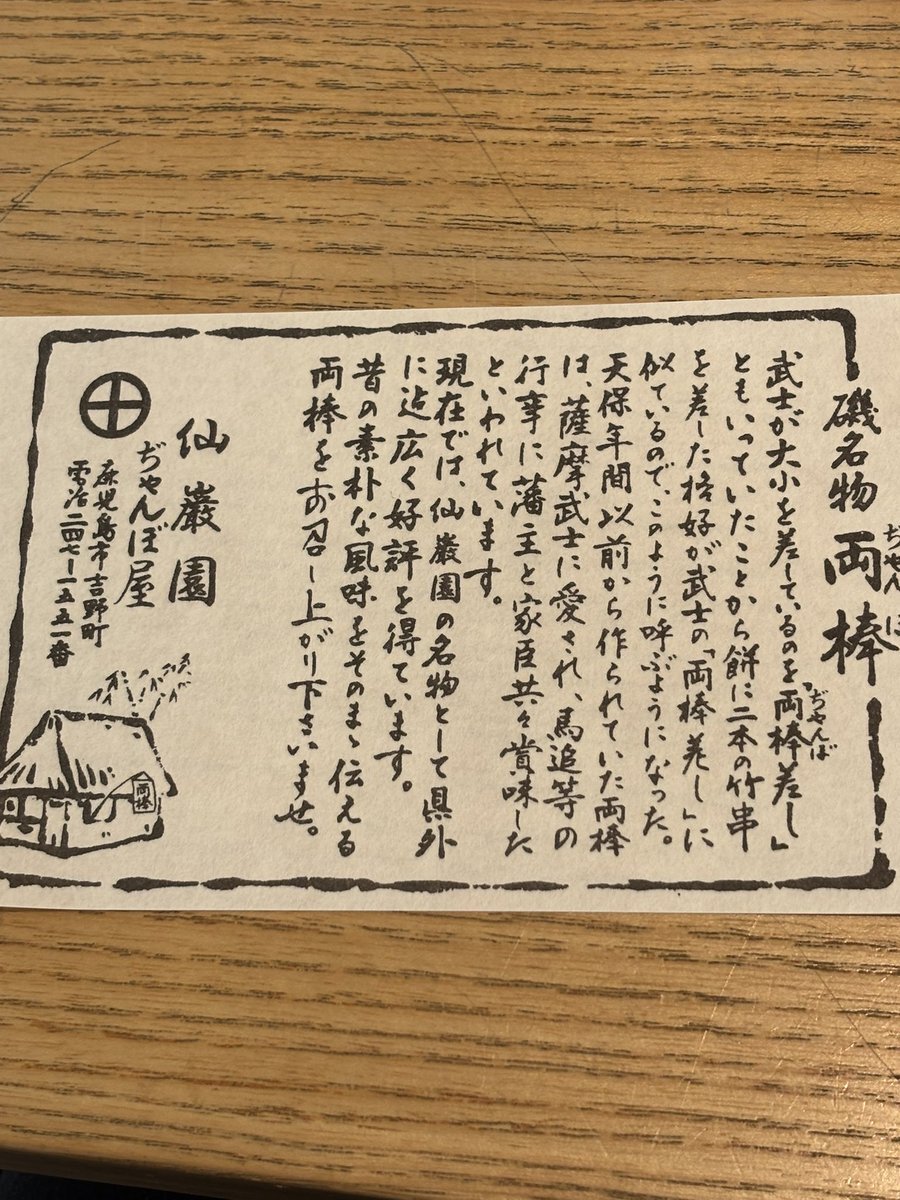 磯名物 両棒
ぢゃんぼ
武士が大小を差しているのを「両棒差し」
ぢゃんぼ
ともいっていたことから餅に二本の竹串
を差した格好が武士の「両棒差し」に
似ているので、このように呼ぶようになった。
天保年間以前から作られていた両棒
は、薩摩武士に愛され、馬追等の
行事に藩主と家臣共々賞味した
といわれています。
現在では、仙巌園の名物として県外
に迄広く好評を得ています。
昔の素朴な風味をそのまゝ伝える
両棒をお召し上がり下さいませ。
仙巌園
ぢゃんぼ屋
鹿児島市吉野町
電話二四七ー一五五一番
両棒